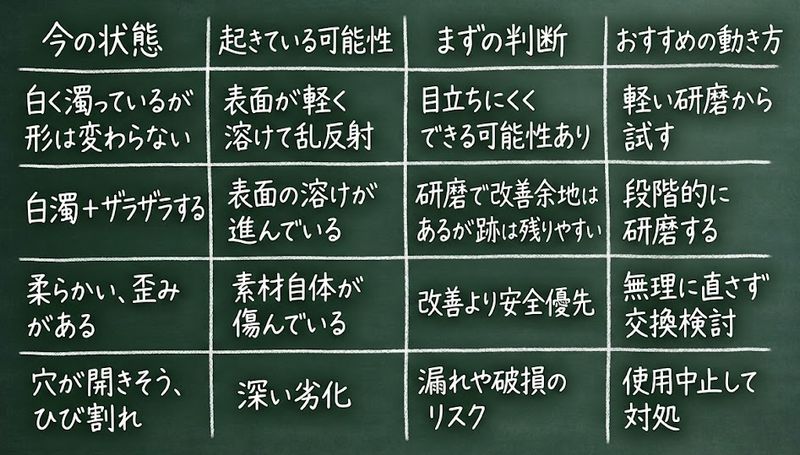 今の状態
起きている可能性
まずの判断
おすすめの動き方
白く濁っているが
形は変わらない
表面が軽く
溶けて乱反射
目立ちにくく
できる可能性あり
軽い研磨から
試す
白濁+ザラザラする
表面の溶けが
進んでいる
研磨で改善余地は
あるが跡は残りやすい
段階的に
研磨する
柔らかい、歪み
がある
素材自体が
傷んでいる
改善より安全優先
無理に直さず
交換検討
穴が開きそう、
ひび割れ
深い劣化
漏れや破損の
リスク
使用中止して
対処